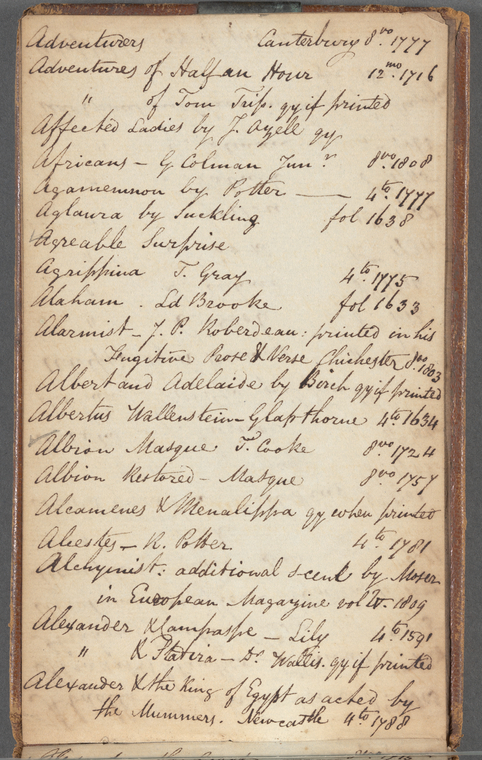 Adventurers Canterbury 8.vo 1777
Adventures of Half an Hour 12.mo 1716
" of Tom Trip. qy if printed
Affected Ladies by J. Ozell qy
Africans - G Colman Junr 8.vo 1808
Agamemnon by Potter — 4.to 1777
Aglaura by Suckling fol 1638
Agreable Surprise
Agrippina T. Gray 4.to 1775
Alaham . Ld Brooke fol 1633
Alarmist - J. P. Roberdeau: printed in his
Fugitive Prose & Verse Chichester 8.vo 1803
Albert and Adelaide by Birch qy if printed
Albertus Wallenstein - Glapthorne 4to 1634
Albion Masque T. Cooke 8.vo 1724
Albion Restored - Masque 8vo 1757
Alcamenes & Menalippa qy when printed
Alcestes - R. Potter 4.to 1781
Alchymist: additional scene by Moser
in European Magazine vol 1809
Alexander & Campaspe - Lily 4to 1591
" & Statira - Dr Wallis. qy if printed
Alexander & the King of Egypt as acted by
the Mummers. Newcastle 4.to 1788